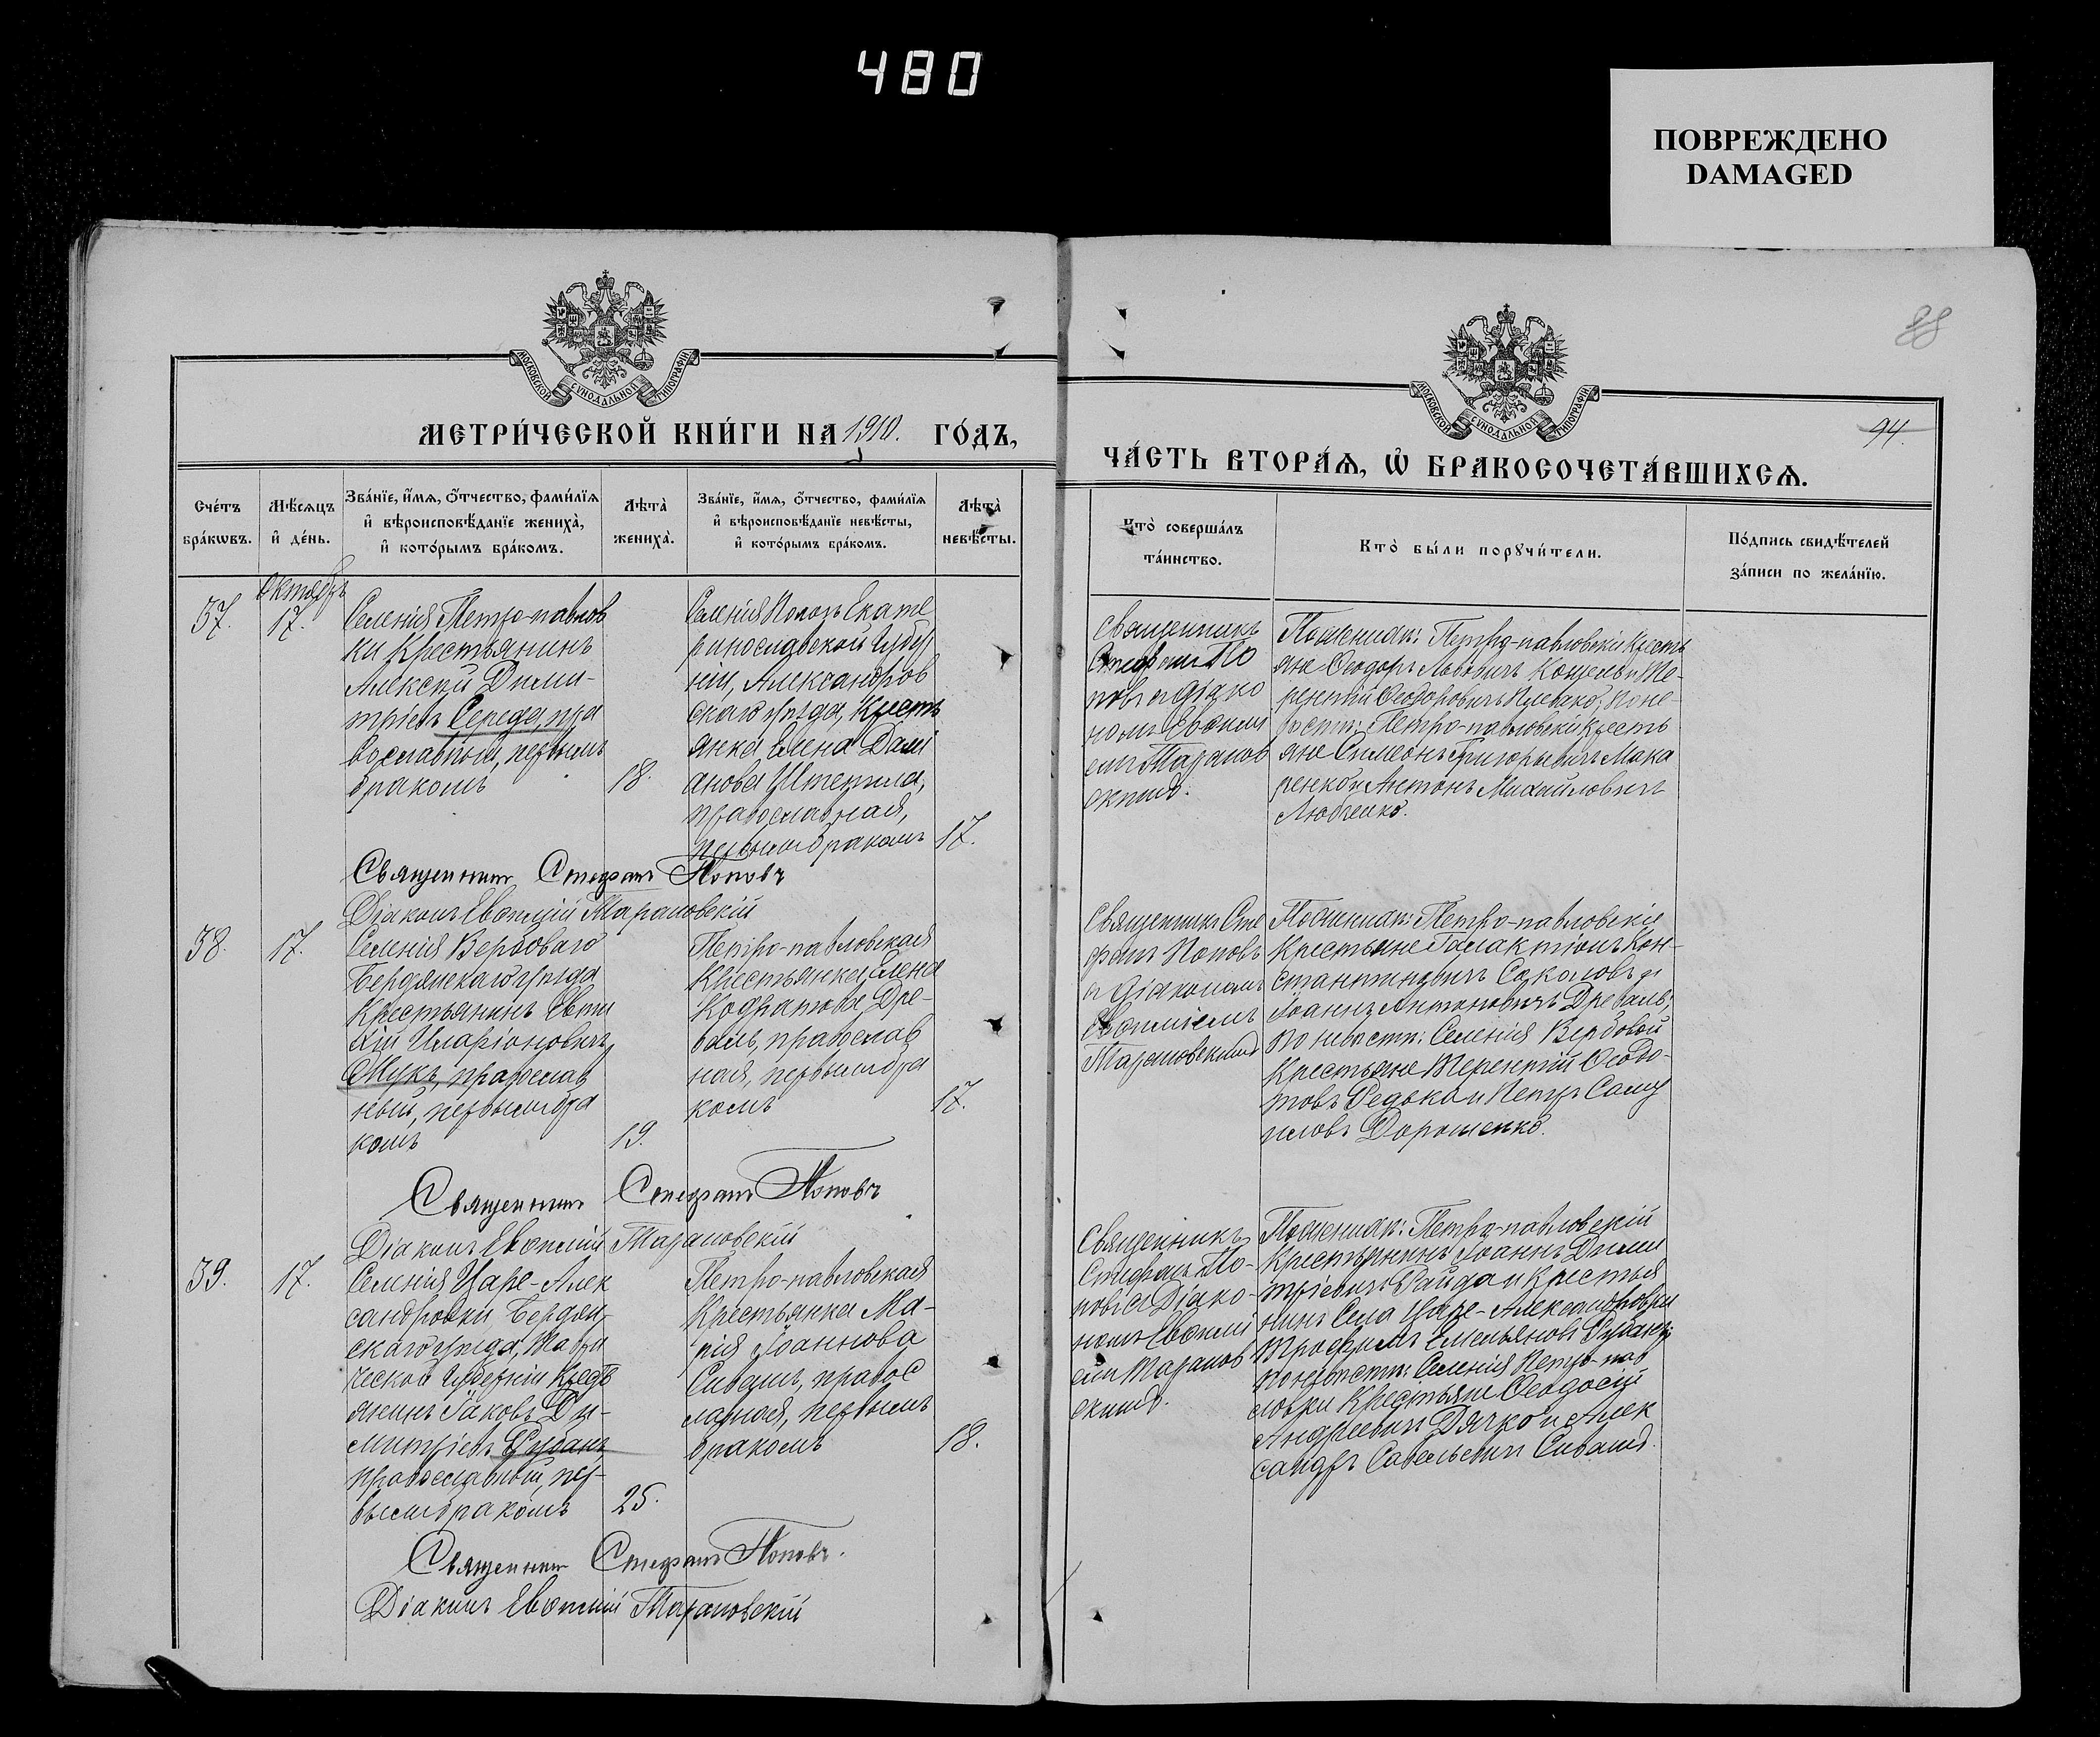 480
ПОВРЕЖДЕНО
DAMAGED
МОСКОВСКОЙ СѴНОДАЛЬНОЙ ТИПОГРАФІИ
МЕТРИ́ЧЕСКОЙ КНИ́ГИ НА 1910. ГО́ДЪ,
Сче́тъ бра́кѡвъ.
Мѣ́сяцъ и҆ де́нь.
Зва́нїе, и҆́мя, ѻ҆́тчество, фами́лїя
и҆ вѣроисповѣ́данїе женихà,
и҆ кото́рымъ бра́комъ.
Лѣ́та̀ женихà.
Зва́нїе, и҆́мя, ѻ҆́тчество, фами́лїя
и҆ вѣроисповѣ́данїе невѣ́сты,
и҆ кото́рымъ бра́комъ.
Лѣ́та̀ невѣ́сты.
Октябрь
37.
17.
Селенія Петро-павлов
ки Крестьянинъ
Алексѣй Дими-
тріевъ Середа, пра
вославный, первымъ
бракомъ
18.
Селенія Пологъ Екате
ринославской губер
ніи, Александров
скаго уѣзда, Кресть
янка Елена Дамі
анова
православная,
первымъ бракомъ
17.
Священникъ Стефанъ Поповъ
Діаконъ Евѳимій Тарановскій
38.
17.
Селенія Вербоваго
Бердянскаго уѣзда
Крестьянинъ Евти
хій Иларіоновичъ
Мукъ, православ
ный, первымъ бра
комъ
19.
Петро-павловская
Крестьянка Елена
Кодратова Дре-
валь, православ
ная, первымъ бра
комъ
17.
Священникъ Стефанъ Поповъ
Діаконъ Евѳимій Тарановскій
39.
17.
Селенія Царе-Алек
сандровки, Бердян
скаго уѣзда, Таври
ческой губерніи Крестъ
янинъ Іаковъ Ди-
митріевъ Рубанъ
православный, пер-
вымъ бракомъ
25.
Петро-павловская
Крестьянка Ма-
рія Іоаннова
Сивашъ, правос
лавная, первымъ
бракомъ
18.
Священникъ Стефанъ Поповъ.
Діаконъ Евѳимій Тарановскій
88
МОСКОВСКОЙ СѴНОДАЛЬНОЙ ТИПОГРАФІИ
94.
ЧА́СТЬ ВТОРА́Я, Ѡ҆ БРАКОСОЧЕТА́ВШИХСЯ.
Кто̀ соверша́лъ та́инство.
Кто̀ бы́ли порꙋчи́тели.
По́дпись свидѣ́телей за́писи по жела́нїю.
Священникъ
Стефанъ По
повъ съ діако
номъ Евѳимі
емъ Таранов
скимъ.
По женихѣ: Петро-павловскіе Кресть
яне Ѳеодоръ Львовичъ и Те-
рентій Ѳеодоровичъ по не-
вѣстѣ: Петро-павловскіе Кресть
яне Симеонъ Григорьевичъ Мака
ренко и Антонъ Михайловичъ
Любченко.
Священникъ Сте
фанъ Поповъ
съ діакономъ
Евѳиміемъ
Тарановскимъ
По женихѣ: Петро-павловскіе
Крестьяне Галактіонъ Кон-
стантиновичъ Соколовъ и
Іоаннъ Антоновичъ Древаль;
по невѣстѣ: Селенія Вербовой
Крестьяне Терентій Ѳедо-
товъ Редька и Петръ Саму
иловъ Дорошенко.
Священникъ
Стефанъ По-
повъ съ Діако-
номъ Евѳимі
емъ Таранов
скимъ.
По женихѣ: Петро-павловскій
Крестьянинъ Іоаннъ Дими
тріевичъ и Крестья
нинъ Села Царе-Александровки
Трофимъ Емельяновъ Рубанъ;
по невѣстѣ: Селенія Петро-пав
ловки Крестьяне Ѳеодосій
Андреевичъ Дячко и Алек
сандръ Савельевичъ Сивашъ.